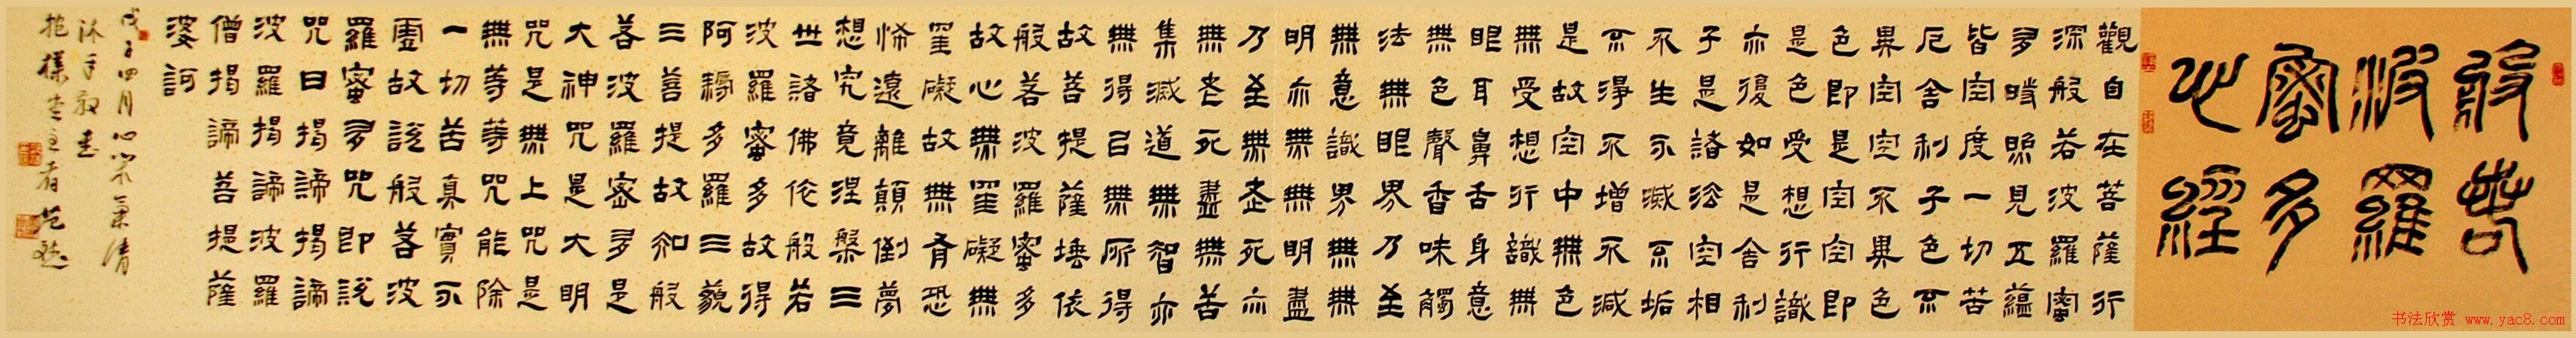 般若
波羅
蜜多
心經
觀自在菩薩行
深般若波羅蜜
多時照見五蘊
皆空度一切苦
厄舍利子色不
異空空不異色
色即是空空即
是色受想行識
亦復如是舍利
子是諸法空相
不生不滅不垢
不淨不增不減
是故空中無色
無受想行識無
眼耳鼻舌身意
無色聲香味觸
法無眼界乃至
無意識界無無
明亦無無明盡
乃至無老死亦
無老死盡無苦
集滅道無智亦
無得以無所得
故菩提薩埵依
般若波羅蜜多
故心無罣礙無
罣礙故無有恐
怖遠離顛倒夢
想究竟涅槃三
世諸佛依般若
波羅蜜多故得
阿耨多羅三藐
三菩提故知般
若波羅密多是
大神咒是大明
咒是無上咒是
無等等咒能除
一切苦真實不
虛故說般若波
羅蜜多咒即說
咒曰揭諦揭諦
波羅揭諦波羅
僧揭諦菩提薩
婆訶
戊子四月心氣清
沐手敬書
抱樸堂主者
书法欣赏 www.yac8.com